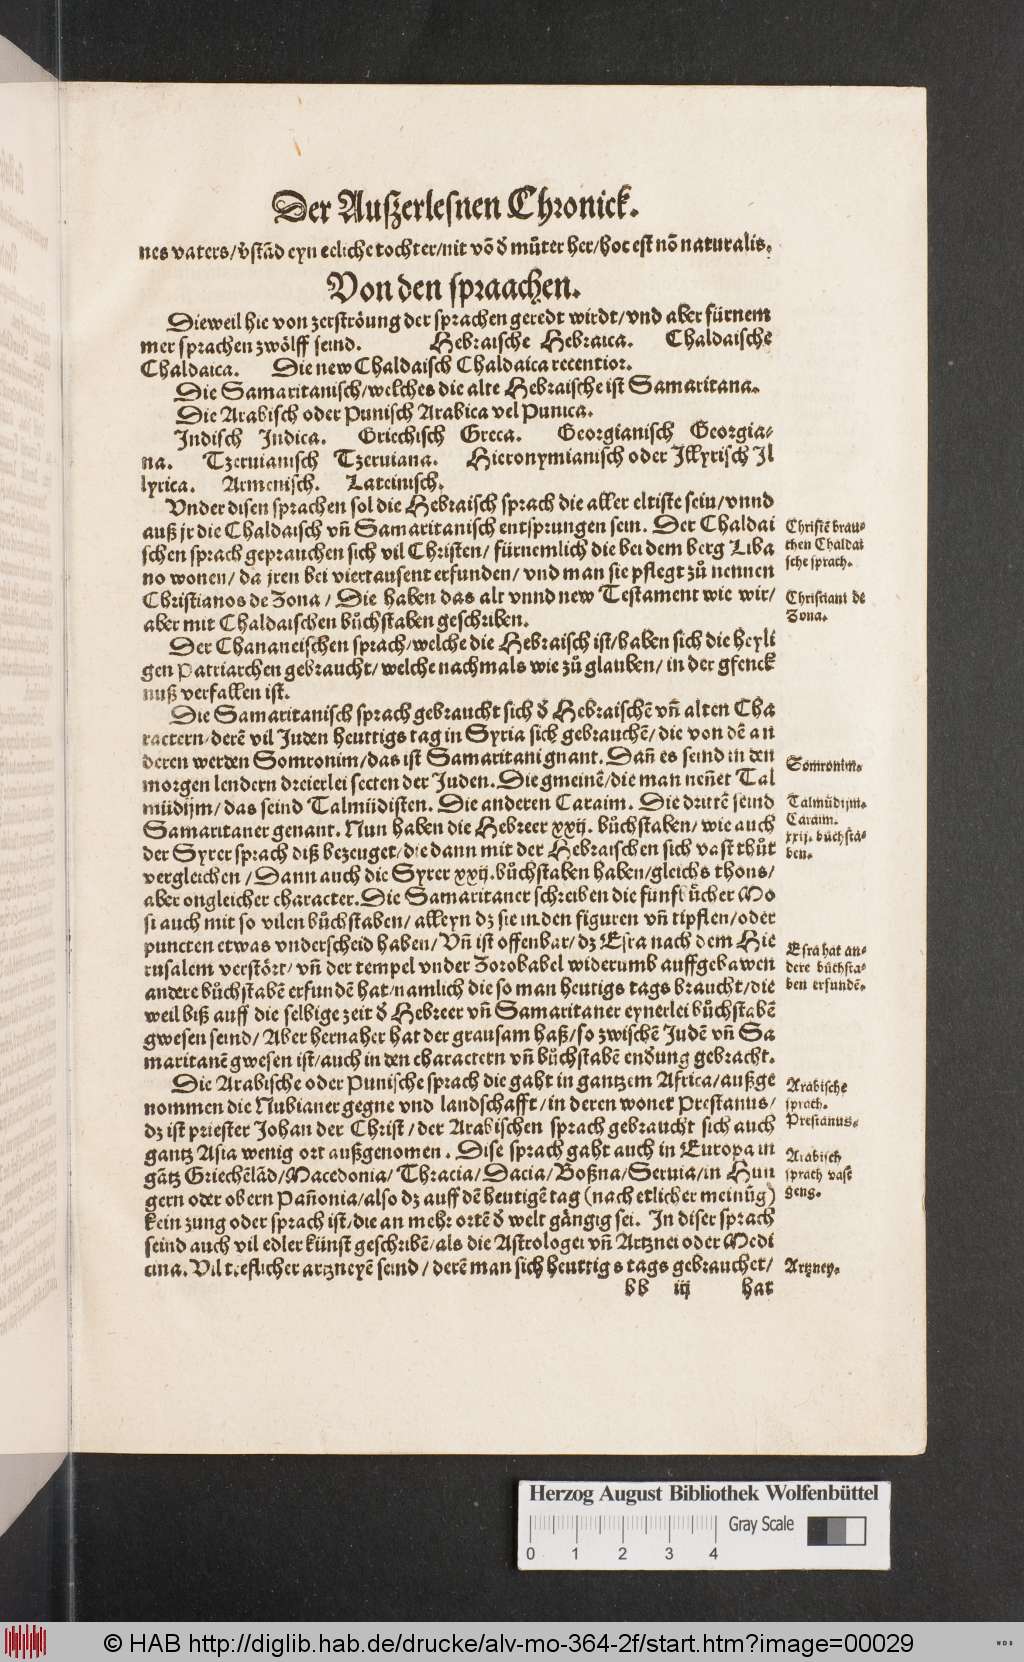 Der Außerlesnen Chronick.
nes vaters/v̄stād eyn eeliche tochter/nit vō d̄ můter her/hoc est nō naturalis.
Von den spraachen.
Dieweil hie von zerströung der sprachen geredt wirdt/vnd aber fürnem
mer sprachen zwölff seind. Hebraische Hebraica. Chaldaische
Chaldaica. Die new Chaldaisch Chaldaica recentior.
Die Samaritanisch/welches die alte Hebraische ist Samaritana.
Die Arabisch oder Punisch Arabica vel Punica.
Indisch Indica. Griechisch Greca. Georgianisch Georgia-
na. Tzeruianisch Tzeruiana. Hieronymianisch oder Illyrisch Il
lyrica. Armenisch. Lateinisch.
Vnder disen sprachen sol die Hebraisch sprach die aller eltiste sein/vnnd
auß jr die Chaldaisch vñ Samaritanisch entsprungen sein. Der Chaldai
schen sprach geprauchen sich vil Christen/ fürnemlich die bei dem berg Liba
no wonen/ da jren bei viertausent erfunden/ vnd man sie pflegt zů nennen
Christianos de Zona/ Die haben das alt vnnd new Testament wie wir/
aber mit Chaldaischen bůchstaben geschriben.
Der Chananeischen sprach/welche die Hebraisch ist/haben sich die heyli
gen Patriarchen gebraucht/ welche nachmals wie zů glauben/ in der gfenck
nuß verfallen ist.
Die Samaritanisch sprach gebraucht sich d̄ Hebraischē vñ alten Cha
ractern/derē vil Juden heuttigs tag in Syria sich gebrauchē/ die von dē an
deren werden Somronim/das ist Samaritani gnant. Dañ es seind in den
morgen lendern dreierlei secten der Juden. Die gmeinē/die man neñet Tal
mûdijm/das seind Talmûdisten. Die anderen Caraim. Die drittē seind
Samaritaner genant. Nun haben die Hebreer xxij. bůchstaben/ wie auch
der Syrer sprach diß bezeuget/die dann mit der Hebraischen sich vast thůt
vergleichen/ Dann auch die Syrer xxij.bůchstaben haben/gleichs thons/
aber ongleicher character. Die Samaritaner schreiben die fünf bůcher Mo
si auch mit so vilen bůchstaben/ alleyn dz sie in den figuren vñ tipflen/oder
puncten etwas vnderscheid haben/ Vñ ist offenbar/ dz Esra nach dem Hie
rusalem verstört/ vñ der tempel vnder Zorobabel widerumb auffgebawen
andere bůchstabē erfundē hat/namlich die so man heutigs tags braucht/die
weil biß auff die selbige zeit d̄ Hebreer vñ Samaritaner eynerlei bůchstabē
gwesen seind/ Aber hernaher hat der grausam haß/so zwischē Judē vñ Sa
maritanē gwesen ist/auch in den charactern vñ bůchstabē end̄ung gebracht.
Die Arabische oder Punische sprach die gaht in gantzem Africa/außge
nommen die Nubianer gegne vnd landschafft/in deren wonet Prestanus/
dz ist priester Johan der Christ/ der Arabischen sprach gebraucht sich auch
gantz Asia wenig ort außgenomen. Dise sprach gaht auch in Europa in
gātz Griechēlād/Macedonia/ Thracia/ Dacia/ Boßna/Seruia/in Hun
gern oder obern Pañonia/also dz auff dē heutigē tag (nach etlicher meinūg)
kein zung oder sprach ist/die an mehr ortē d̄ welt gängig sei. In diser sprach
seind auch vil edler künst geschribē/als die Astrologei vñ Artznei oder Medi
cina. Vil treflicher artzneyē seind/ derē man sich heuttigs tags gebrauchet/
bb iij hat
Christē brau-
chen Chaldai
sche sprach.
Christiani de
Zona.
Somronim.
Talmûdijm.
Caraim.
xxij. bůchsta-
ben.
Esra hat an-
dere bůchsta-
ben erfundē.
Arabische
sprach.
Prestanus.
Arabisch
sprach vast
geng.
Artzney.
Herzog August Bibliothek Wolfenbüttel
Gray Scale
0 1 2 3 4
© HAB http://diglib.hab.de/drucke/alv-mo-364-2f/start.htm?image=00029